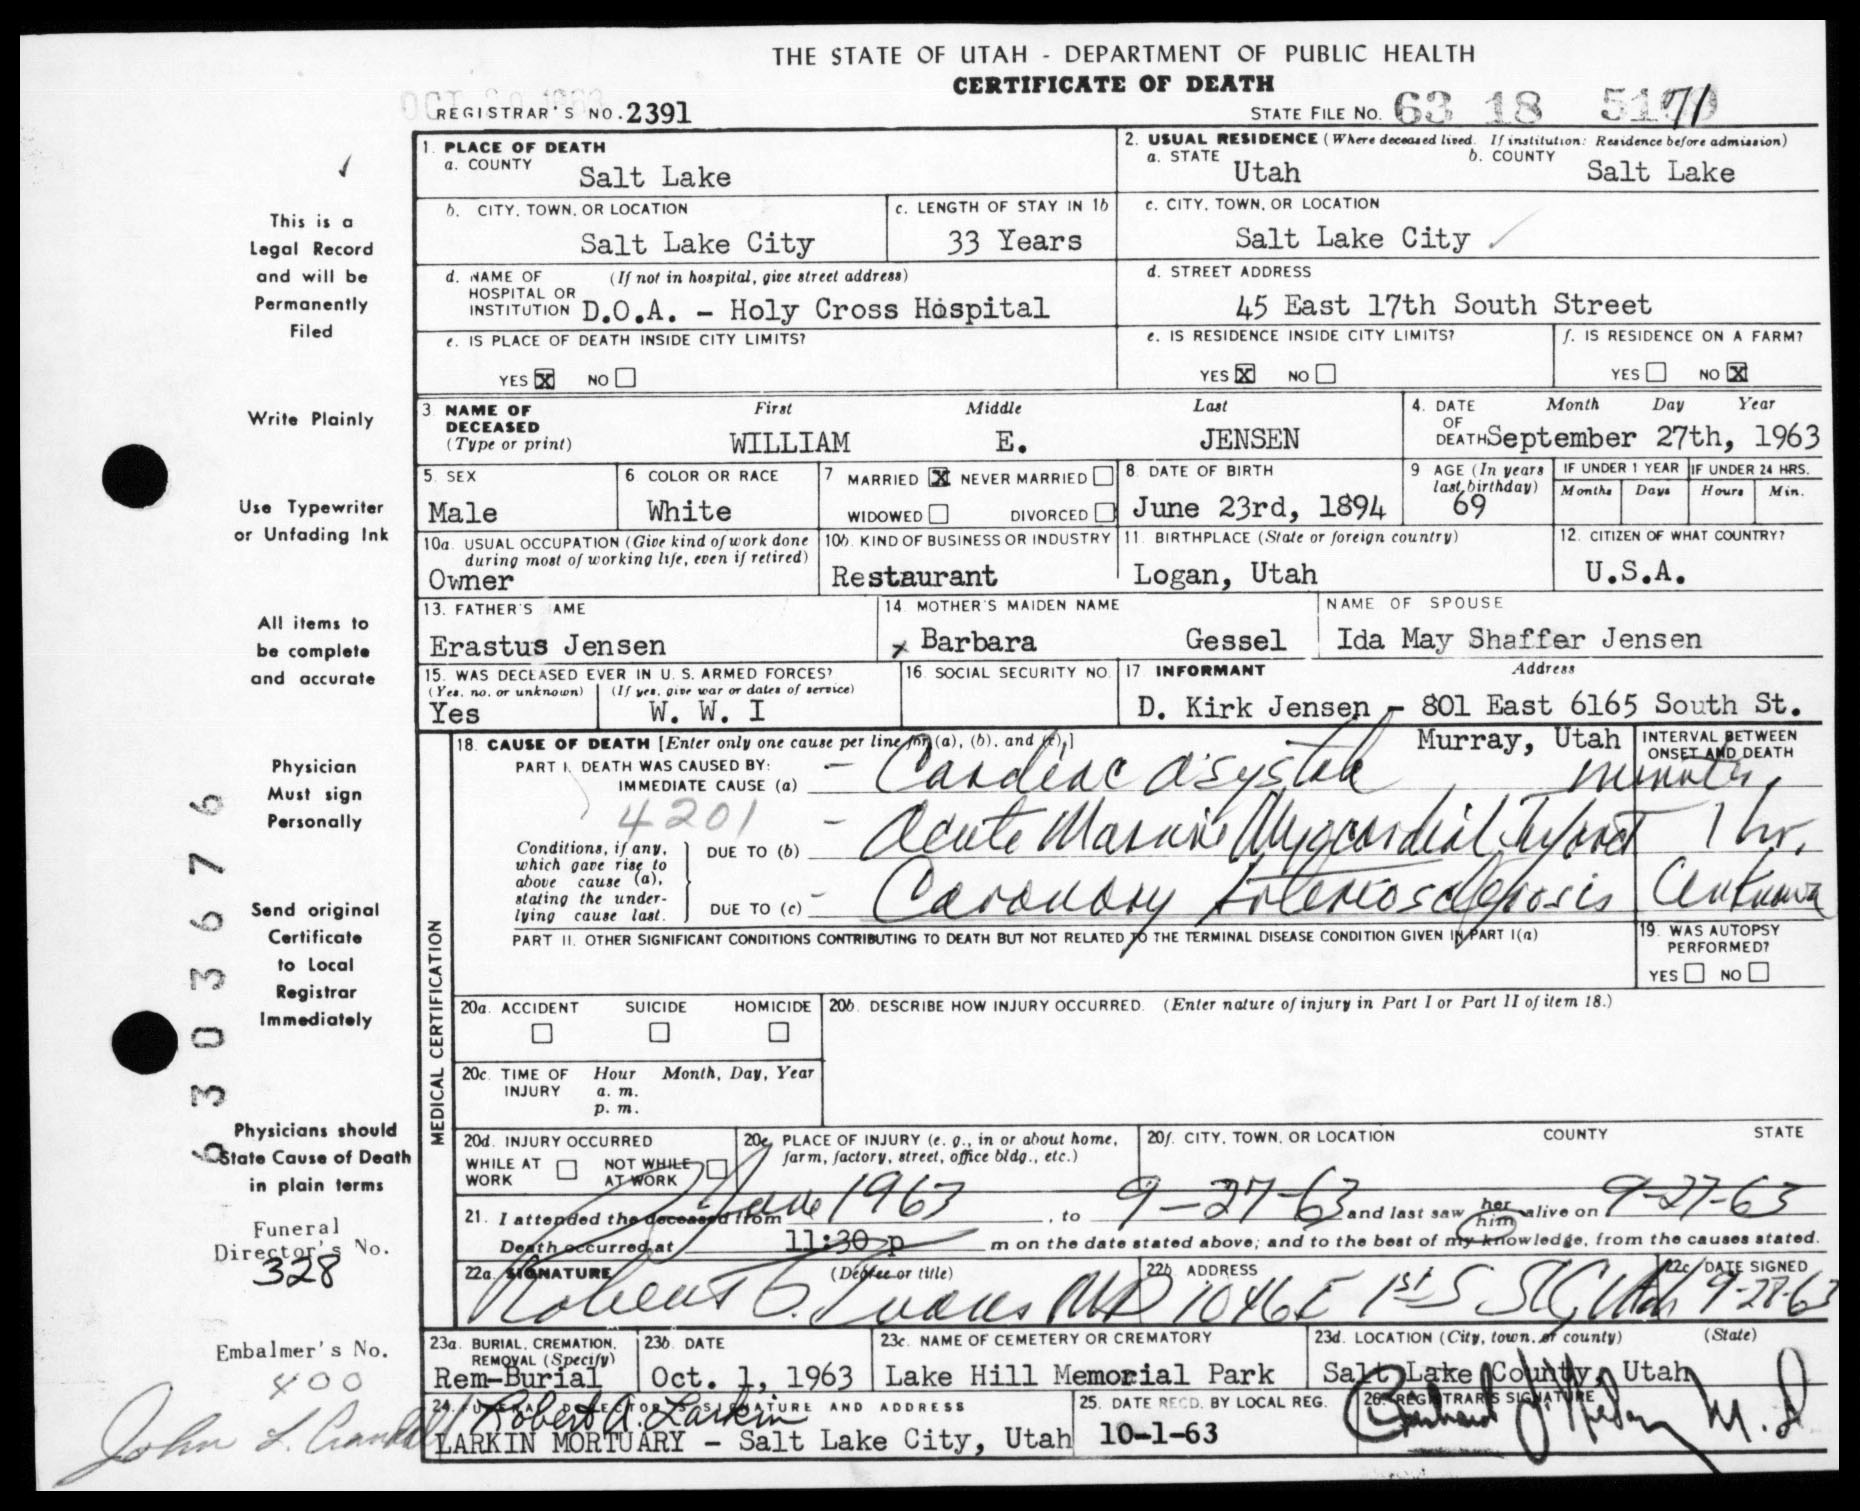 THE STATE OF UTAH - DEPARTMENT OF PUBLIC HEALTH
CERTIFICATE OF DEATH
REGISTRAR'S NO. 2391
STATE FILE NO. 63 18 5171
1. PLACE OF DEATH
a. COUNTY Salt Lake
2. USUAL RESIDENCE (Where deceased lived. If institution: Residence before admission)
a. STATE Utah b. COUNTY Salt Lake
b. CITY, TOWN, OR LOCATION Salt Lake City
c. LENGTH OF STAY IN 1b 33 Years
c. CITY, TOWN, OR LOCATION Salt Lake City
d. NAME OF HOSPITAL OR INSTITUTION (If not in hospital, give street address) D.O.A. - Holy Cross Hospital
d. STREET ADDRESS 45 East 17th South Street
e. IS PLACE OF DEATH INSIDE CITY LIMITS?
YES X NO
e. IS RESIDENCE INSIDE CITY LIMITS?
YES X NO
f. IS RESIDENCE ON A FARM?
YES NO X
3. NAME OF DECEASED (Type or print)
First Middle Last
WILLIAM E. JENSEN
4. DATE OF DEATH Month Day Year
September 27th, 1963
5. SEX Male
6 COLOR OR RACE White
7 MARRIED X NEVER MARRIED
WIDOWED DIVORCED
8 DATE OF BIRTH June 23rd, 1894
9 AGE (In years last birthday) 69
IF UNDER 1 YEAR Months Days
IF UNDER 24 HRS. Hours Min.
10a. USUAL OCCUPATION (Give kind of work done during most of working life, even if retired) Owner
10b. KIND OF BUSINESS OR INDUSTRY Restaurant
11. BIRTHPLACE (State or foreign country) Logan, Utah
12. CITIZEN OF WHAT COUNTRY? U.S.A.
13. FATHER'S AME Erastus Jensen
14. MOTHER'S MAIDEN NAME x Barbara Gessel
NAME OF SPOUSE Ida May Shaffer Jensen
15. WAS DECEASED EVER IN U. S. ARMED FORCES?
(Yes, no, or unknown) Yes
(If yes, give war or dates of service) W. W. I
16. SOCIAL SECURITY NO.
17 INFORMANT Address
D. Kirk Jensen - 801 East 6165 South St.
Murray, Utah
18. CAUSE OF DEATH [Enter only one cause per line for (a), (b), and (c).]
INTERVAL BETWEEN ONSET AND DEATH
PART I. DEATH WAS CAUSED BY:
IMMEDIATE CAUSE (a) - Cardiac asystole minutes
4201
Conditions, if any, which gave rise to above cause (a), stating the underlying cause last.
DUE TO (b) - Acute Massive Myocardial Infarct 1 hr.
DUE TO (c) - Coronary Arteriosclerosis Unknown
PART II. OTHER SIGNIFICANT CONDITIONS CONTRIBUTING TO DEATH BUT NOT RELATED TO THE TERMINAL DISEASE CONDITION GIVEN IN PART I(a)
19. WAS AUTOPSY PERFORMED?
YES NO
MEDICAL CERTIFICATION
20a. ACCIDENT SUICIDE HOMICIDE
20b. DESCRIBE HOW INJURY OCCURRED. (Enter nature of injury in Part I or Part II of item 18.)
20c. TIME OF INJURY Hour Month, Day, Year
a. m.
p. m.
20d. INJURY OCCURRED
WHILE AT WORK NOT WHILE AT WORK
20e. PLACE OF INJURY (e. g., in or about home, farm, factory, street, office bldg., etc.)
20f. CITY, TOWN, OR LOCATION COUNTY STATE
21. I attended the deceased from June 1963, to 9-27-63 and last saw her him alive on 9-27-63
Death occurred at 11:30 p m on the date stated above; and to the best of my knowledge, from the causes stated.
22a. SIGNATURE (Degree or title) Robert G. Evans MD
22b ADDRESS 1046 E 1st S SLC, Utah
22c. DATE SIGNED 9-28-63
23a. BURIAL, CREMATION, REMOVAL (Specify) Rem-Burial
23b. DATE Oct. 1, 1963
23c. NAME OF CEMETERY OR CREMATORY Lake Hill Memorial Park
23d. LOCATION (City, town, or county) (State) Salt Lake County, Utah
24. FUNERAL DIRECTOR'S SIGNATURE AND ADDRESS
Robert A. Larkin
LARKIN MORTUARY - Salt Lake City, Utah
25. DATE RECD. BY LOCAL REG. 10-1-63
26. REGISTRAR'S SIGNATURE
M.D
This is a
Legal Record
and will be
Permanently
Filed
Write Plainly
Use Typewriter
or Unfading Ink
All items to
be complete
and accurate
Physician
Must sign
Personally
Send original
Certificate
to Local
Registrar
Immediately
Physicians should
State Cause of Death
in plain terms
6303676
Funeral
Director's No.
328
Embalmer's No.
400
John L.